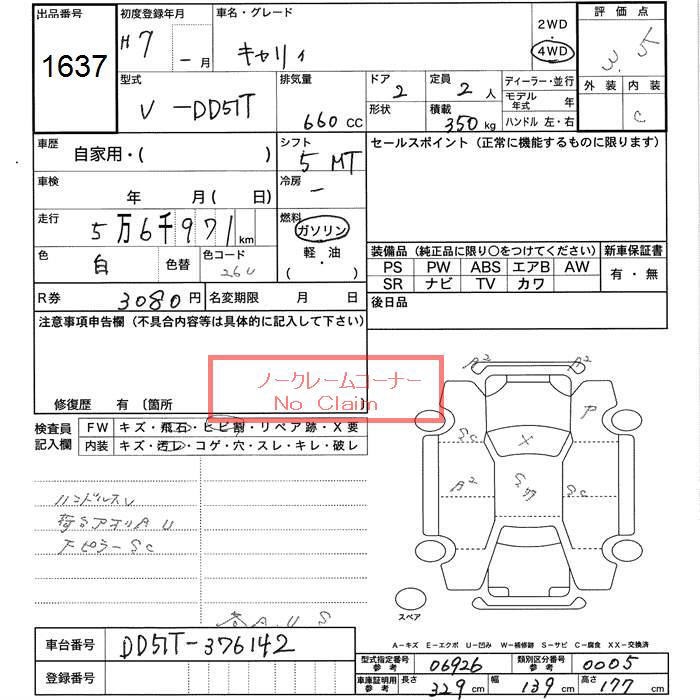 出品番号
1637
初度登録年月
H7 - 月
車名・グレード
キャリィ
2WD
4WD
評価点
3.5
外装 内装
C
型式
V-DD51T
排気量
660 CC
ドア
2
形状
定員
2 人
積載
350 kg
ディーラー・並行
モデル年式 年
ハンドル 左・右
車歴
自家用・( )
シフト
5 MT
セールスポイント (正常に機能するものに限ります)
車検
年 月 ( 日)
冷房
-
走行
5万6千971 km
燃料
ガソリン
軽・油
( )
色
白
色替
色コード
26U
装備品 (純正品に限り〇をつけてください)
PS PW ABS エアB AW
SR ナビ TV カワ
新車保証書
有・無
R券
3080 円
名変期限 月 日
後日品
注意事項申告欄 (不具合内容等は具体的に記入して下さい)
ノークレームコーナー
No Claim
修復歴 有 〔箇所 〕
検査員記入欄
FW キズ・飛石・ヒビ割・リペア跡・X要
内装 キズ・汚レ・コゲ・穴・スレ・キレ・破レ
ハンドルスレ
荷台アオリ A U
下ピラー SC
A2
A2
P
SC
X
A2
SC
スペア
A-キズ E-エクボ U-凹み W-補修跡 S-サビ C-腐食 XX-交換済
車台番号
DD51T-376142
登録番号
型式指定番号 参考
06926
類別区分番号 参考
0005
車庫証明用 参考
長さ 329 cm
幅 139 cm
高さ 177 cm